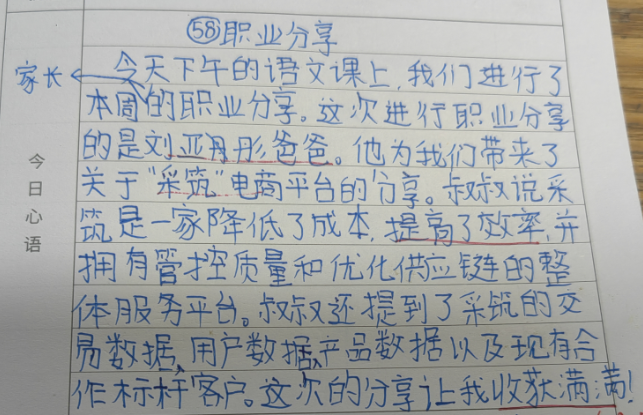 58职业分享
今天下午的语文课上,我们进行了
家长
本周的职业分享。这次进行职业分享
的是刘亚丹彤爸爸。他为我们带来了
关于“采筑”电商平台的分享。叔叔说采
筑是一家降低了成本,提高了效率,并
拥有管控质量和优化供应链的整
体服务平台。叔叔还提到了采筑的交
易数据、用户数据、产品数据以及现有合
作标杆客户。这次的分享让我收获满满!
今日心语